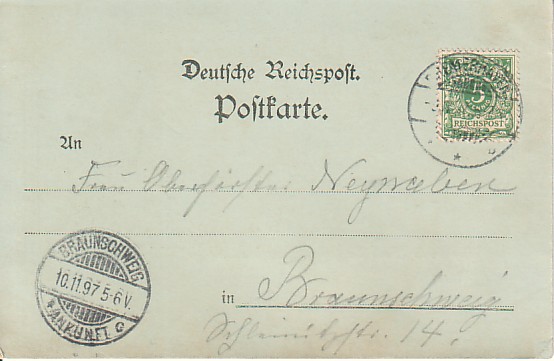 Deutsche Reichspost.
Postkarte.
5
REICHSPOST
An
Frau Oberförster
in Braunschweig
14.
BRAUNSCHWEIG
10.11.97.5-6V.
* ANKUNFT C